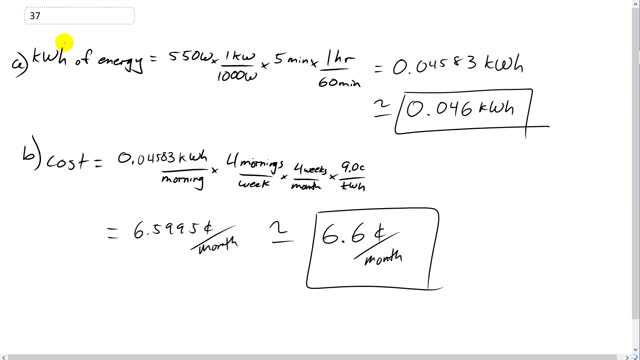 37
a) kWh of energy = 550W × 1kW/1000W × 5min × 1hr/60min = 0.04583 kWh
≃ 0.046 kWh
b) cost = 0.04583 kWh/morning × 4 mornings/week × 4 weeks/month × 9.0¢/kWh
= 6.5995¢/month ≃ 6.6¢/month